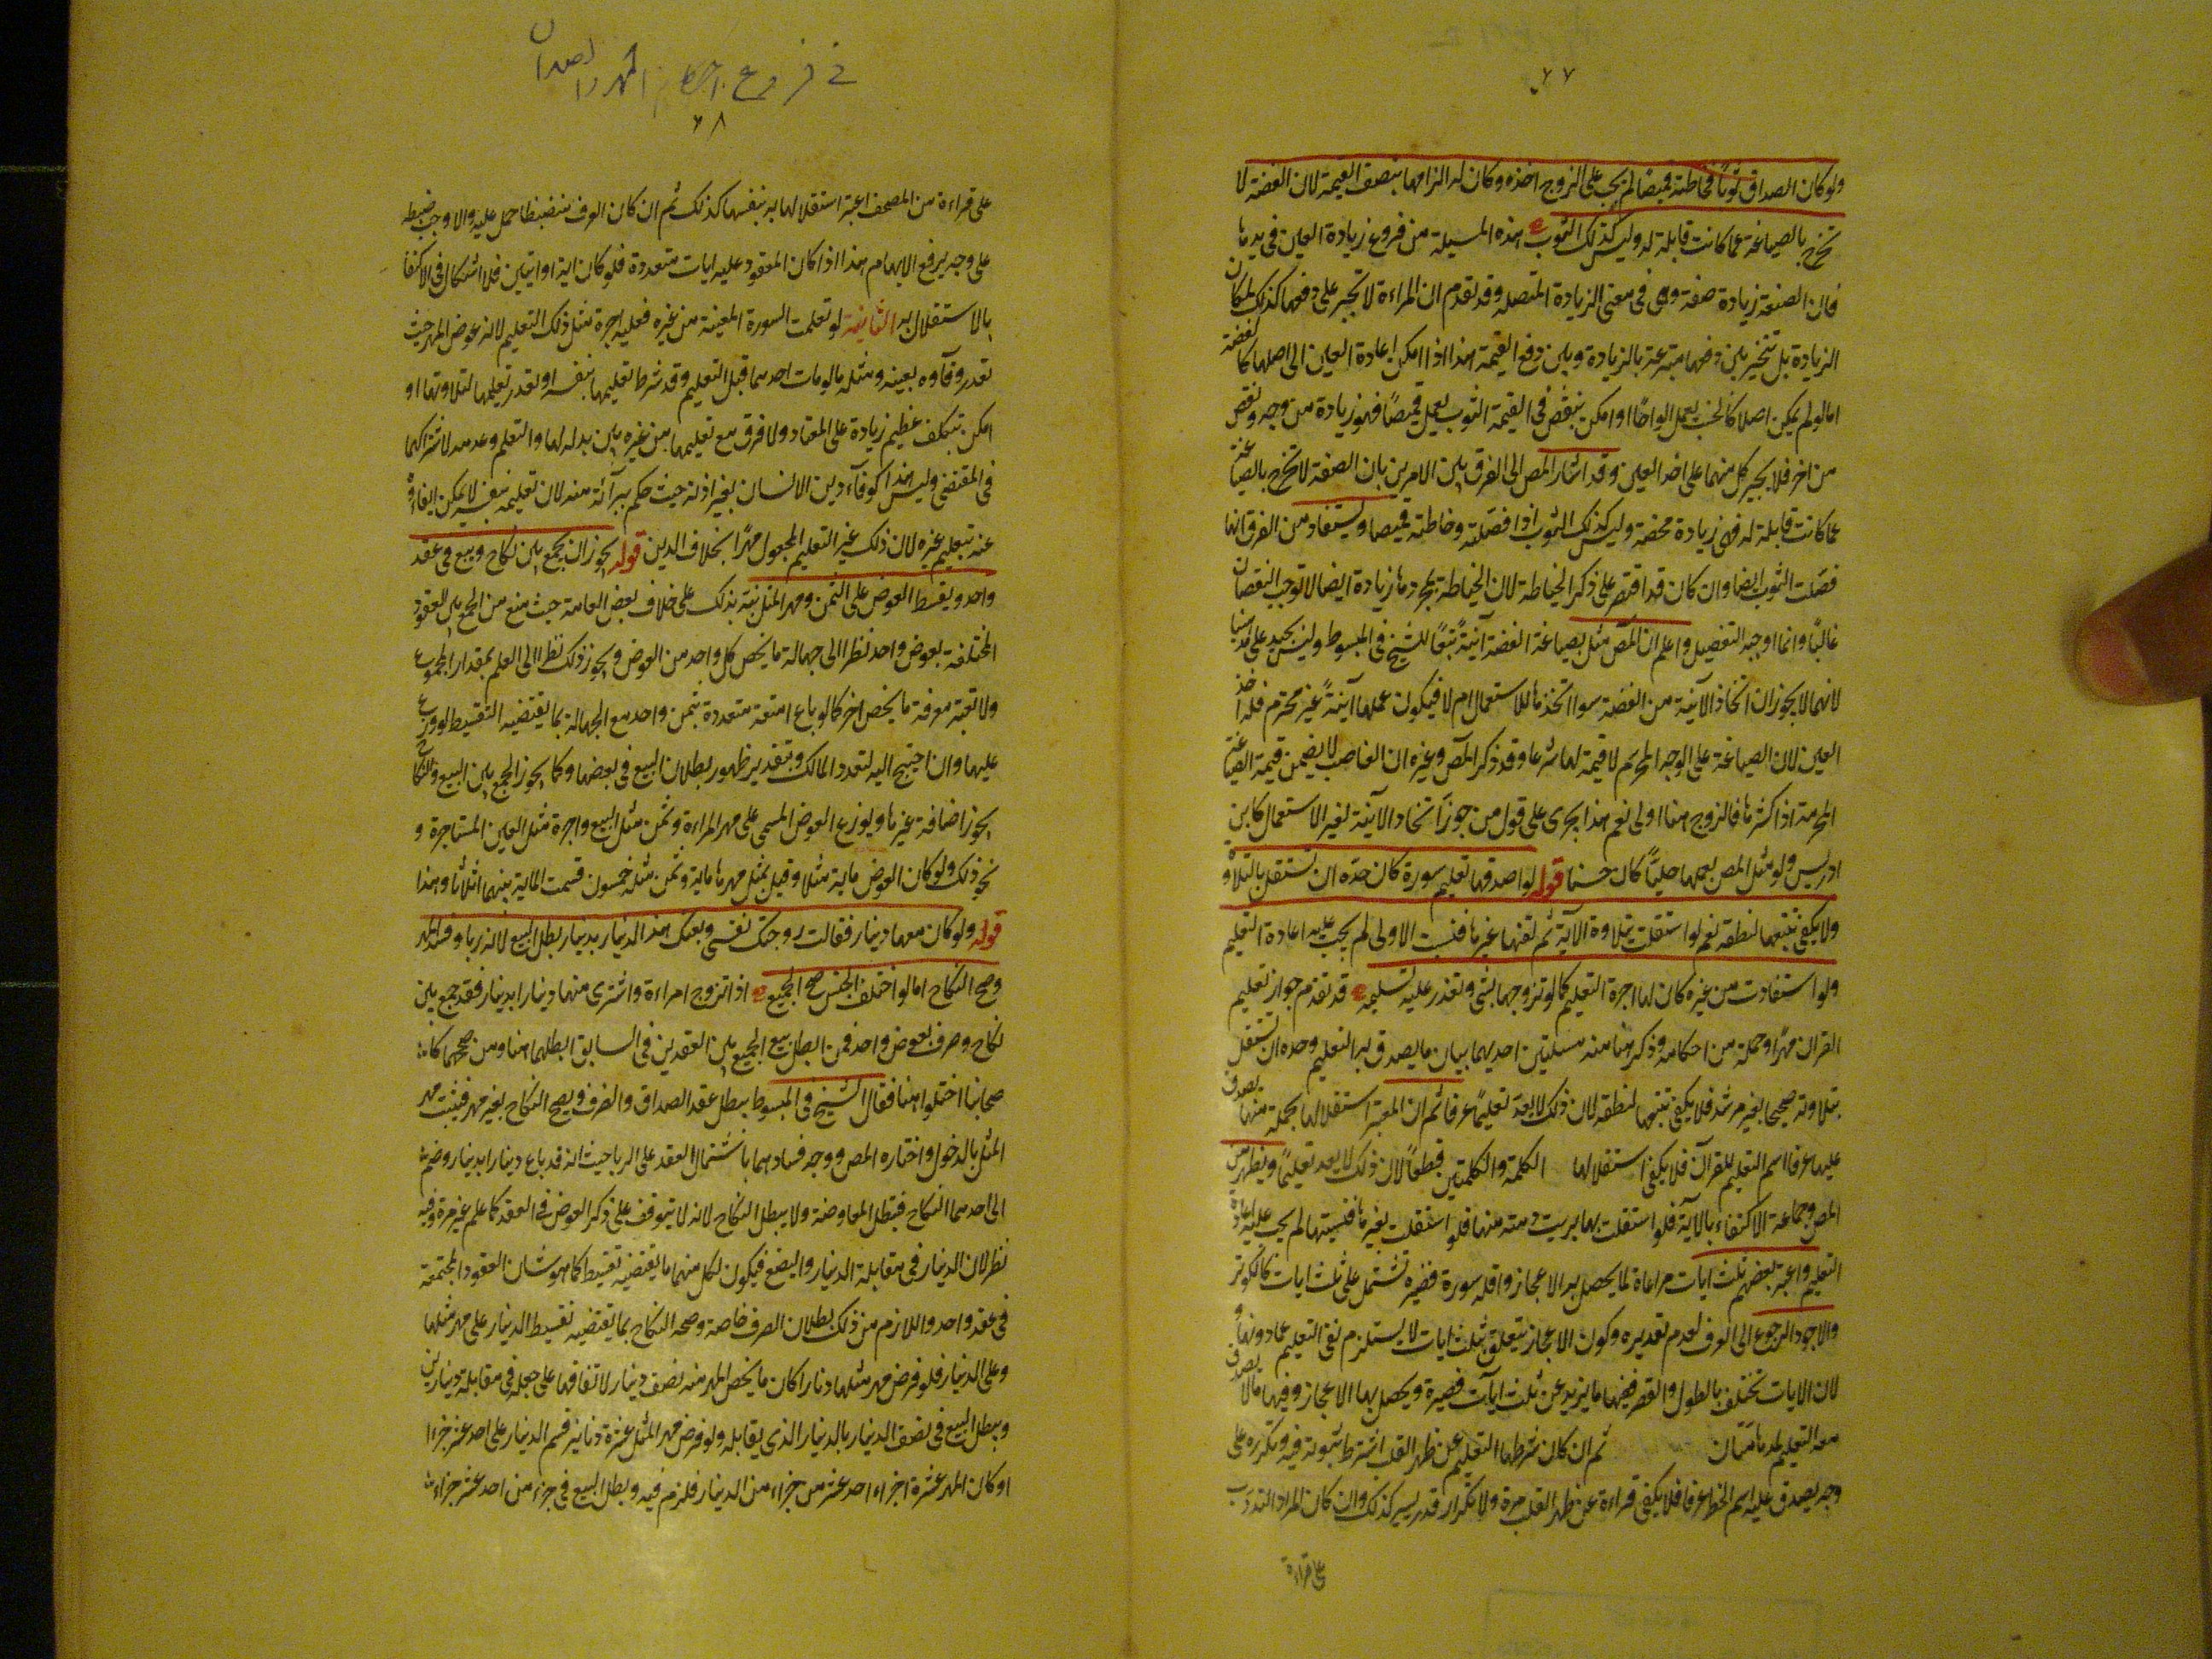 ٢٧
ولو كان الصداق ثوبا فخاطته قميصا لم يجب على الزوج اخذه وكان له الزامها بنصف القيمة لان الفضة لا
تخرج بالصياغة عما كانت قابلة له وليس كذلك الثوب هذه المسيلة من فروع زيادة العين في يدها
فان الصنعة زيادة صفة وهي في معنى الزيادة المتصلة وقد تقدم ان المراءة لا تجبر على دفعها كذلك لمكان
الزيادة بل تتخير بين دفعها متبرعة بالزيادة وبين دفع القيمة هذا اذا امكن اعادة العين الى اصلها كالفضة
اما لو لم يمكن اصلا كالخشب يعمل الواحا او امكن بنقص في القيمة الثوب يعمل قميصا فهو زيادة من وجه ونقص
من اخر فلا يجبر كل منهما على اخذ العين وقد اشار المص الى الفرق بين الامرين بان الصنعة لا تخرج بالصياغة
عما كانت قابلة له فهي زيادة محضة وليس كذلك الثوب اذا فصلته وخاطته قميصا ويستفاد من الفرق انها
فصلت الثوب ايضا وان كان قد اقتصر على ذكر الخياطة لان الخياطة بمجردها زيادة ايضا لا توجب النقصان
غالبا وانما اوجبه التفصيل واعلم ان المص مثل بصياغة الفضة آنية تبعا للشيخ في المبسوط وليس بجيد على مذهبنا
لانهما لا يجوزان اتخاذ الآنية من الفضة سوا اتخذها للاستعمال ام لا فيكون عملها آنية غير محترم فله اخذ
العين لان الصياغة على الوجه المحرم لا قيمة لها شرعا وقد ذكر المص وغيره ان الغاصب لا يضمن قيمة الصياغة
المحرمة اذا كسرها فالزوج هنا اولى نعم هذا يجرى على قول من جوز اتخاد الآنية لغير الاستعمال كابن
ادريس ولو مثل المص بعملها حليا كان حسنا قوله لو اصدقها تعليم سورة كان حده ان تستقل بالتلاوة
ولا يكفي تتبعها لنطقه نعم لو استقلت بتلاوة الآية ثم لقنها غيرها فنسيت الاولى لم يجب عليه اعادة التعليم
ولو استفادت من غيره كان لها اجرة التعليم كما لو تزوجها بشى وتعذر عليه تسليمه قد تقدم جواز تعليم
القران مهرا وجملة من احكامه وذكر هنا منه مسئلتين احديهما بيان ما يصدق به التعليم وحده ان تستقل
بتلاوته صحيحا بغير مرشد فلا يكفي تتبعها لنطقه لان ذلك لا يعد تعليما عرفا ثم ان المعتبر استقلالها بجملة منها يصدق
عليها عرفا اسم التعليم للقرآن فلا يكفي استقلالها الكلمة والكلمتين قطعا لان ذلك لا يعد تعليما ويظهر من
المص وجماعة الاكتفاء بالآية فلو استقلت بها بريت ذمته منها فلو استقلت بغيرها فنسيتها لم يجب عليه اعادة
التعليم واعتبر بعضهم ثلث ايات مراعاة لما يحصل به الاعجاز واقله سورة قصيرة تشتمل على ثلث ايات كالكوثر
والاجود الرجوع الى العرف لعدم تقديره وكون الاعجاز يتعلق بثلث ايات لا يستلزم نفي التعليم عما دونها و
لان الايات تختلف بالطول والقصر ففيها ما يزيد عن ثلث ايآت قصيرة ويحصل بها الاعجاز وفيها ما لا يصدق
معه التعليم ثم ان كان شرطها التعليم عن ظهر القلب اشترط ثبوته فيه وتكرره على
وجه يصدق عليه اسم الحفظ عرفا فلا يكفي قراءة عن ظهر القلب مرة ولا تكرار قدر يسير كذلك وان كان المراد التدرب
على قراءة
في فروع احكام المهر والصداق
٢٨
على قراءة من المصحف اعتبر استقلالها به بنفسها كذلك ثم ان كان العرف منضبطا حمل عليه والا وجب ضبطه
على وجه يرفع الابهام هذا اذا كان المعقود عليه ايات متعددة فلو كان اية او ايتين فلا اشكال في الاكتفا
بالاستقلال به الثانية لو تعلمت السورة المعينة من غيره فعليه اجرة مثل ذلك التعليم لانه عوض المهر حيث
تعذر وفآوه بعينه ومثله ما لو مات احدهما قبل التعليم وقد شرط تعليمها بنفسه او تعذر تعليمها لبلادتها او
امكن بتكلف عظيم زيادة على المعتاد ولا فرق مع تعليمها من غيره بين بذله لها والتعلم وعدمه لاشتراكهما
في المقتضى وليس هذا كوفآء دين الانسان بغير اذنه حيث حكم ببرآئة منه لان تعليمه بنفسه لا يمكن ايفاؤه
عنه بتعليم غيره لان ذلك غير التعليم المجعول مهرا بخلاف الدين قوله يجوز ان يجمع بين نكاح وبيع في عقد
واحد ويقسط العوض على الثمن ومهر المثل نبه بذلك على خلاف بعض العامة حيث منع من الجمع بين العقود
المختلفة بعوض واحد نظرا الى جهالة ما يخص كل واحد من العوض ويجوز ذلك نظرا الى العلم بمقدار المجموع
ولا تعتبر معرفة ما يخص اخر كما لو باع امتعة متعددة بثمن واحد مع الجهالة بما يقتضيه التقسيط لو وزع
عليها وان احتيج اليه لتعدد المالك وبتقدير ظهور بطلان البيع في بعضها وكما يجوز الجمع بين البيع والنكاح
يجوز اضافة غيرها ويوزع العوض المسمى على مهر المراءة وثمن مثل المبيع واجرة مثل العين المستاجرة و
نحو ذلك ولو كان العوض ماية مثلا وقيل بمثل مهرها ماية وثمن مثله خمسون قسمت الماية بينهما اثلاثا وهذا
قوله ولو كان معها دينار فقالت زوجتك نفسى وبعتك هذا الدينار بدينار بطل البيع لانه ربا وفسد المهر
وصح النكاح اما لو اختلف الجنس صح الجميع اذا تزوج امراءة واشترى منها دينارا بدينار فقد جمع بين
نكاح وصرف بعوض واحد فمن ابطل بيع الجميع بين العقدين في السابق ابطلهما هنا ومن صححهما كا
صحابنا اختلفوا هنا فقال الشيخ في المبسوط يبطل عقد الصداق والصرف ويصح النكاح بغير مهر فيثبت مهر
المثل بالدخول واختاره المص ووجه فسادهما باشتمال العقد على الربا حيث انه قد باع دينارا بدينار وضم
الى احدهما النكاح فتبطل المعاوضة ولا يبطل النكاح لانه لا يتوقف على ذكر العوض في العقد كما علم غير مرة وفيه
نظر لان الدينار في مقابلة الدينار والبضع فيكون لكل منهما ما يقتضيه تقسيط كما هو شان العقود المجتمعة
في عقد واحد واللازم من ذلك بطلان الصرف خاصة وصحه النكاح بما يقتضيه تقسيط الدينار على مهر مثلها
وعلى الدينار فلو فرض مهر مثلها دنارا كان ما يخص المهر منه نصف دينار لاتفاقهما على جعله في مقابلة دينارين
ويبطل البيع في نصف الدينار بالدينار الذي يقابله ولو فرض مهر المثل عشرة دنانير قسم الدينار على احد عشر جزءا
او كان المهر عشرة اجزاء احد عشر من جزاء من الدينار فلزم فيه ويبطل البيع في جزء من احد عشر جزاء